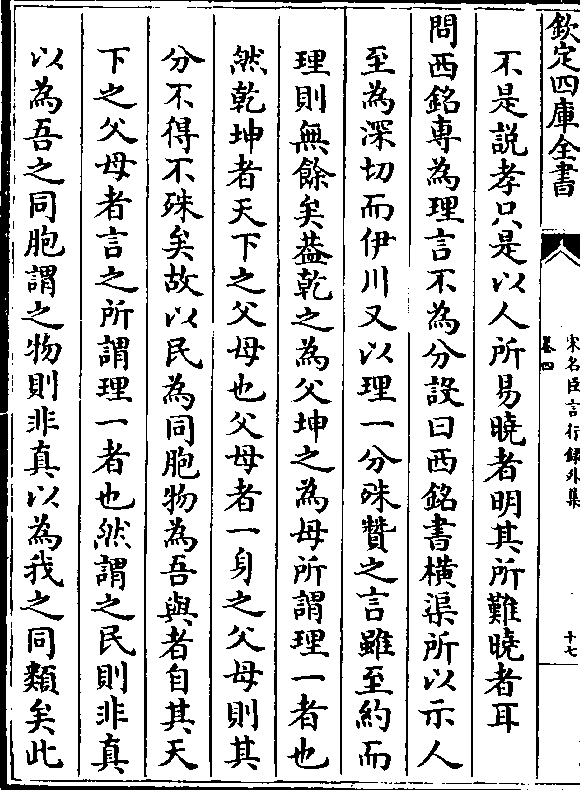 欽定四庫全書
宋名臣言行錄外集
卷四
十七
不是説孝只是以人所易曉者明其所難曉者耳
問西銘專為理言不為分設曰西銘書橫渠所以示人
至為深切而伊川又以理一分殊贊之言雖至約而
理則無餘矣葢乾之為父坤之為母所謂理一者也
然乾坤者天下之父母也父母者一身之父母則其
分不得不殊矣故以民為同胞物為吾與者自其天
下之父母者言之所謂理一者也然謂之民則非真
以為吾之同胞謂之物則非真以為我之同類矣此